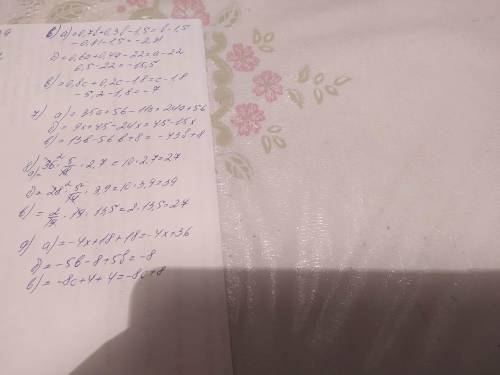 6) а) = 0,7b+0,3b-1,5=b-1,5
-0,81-1,5=-2,7
б) = 0,6a+0,4a-22=a-22
6,5-22=-15,5
в) = 0,8c+0,2c-1,8=c-1,8
-5,2-1,8=-7
7) а) = 35a+56-11a=24a+56
б) = 9x+45-24x=45-15x
в) = 13b-56b+8=-43b+8
8)
а) = 36² · 5/18 · 2,7 = 10·2,7=27
· 3,9=10·3,9=39
· 14 · 13,5=2·13,5=27
9) а) = -4x+18+18=-4x+36
б) = -5b-8+5b=-8
в) = -8c+4+4=-8c+8